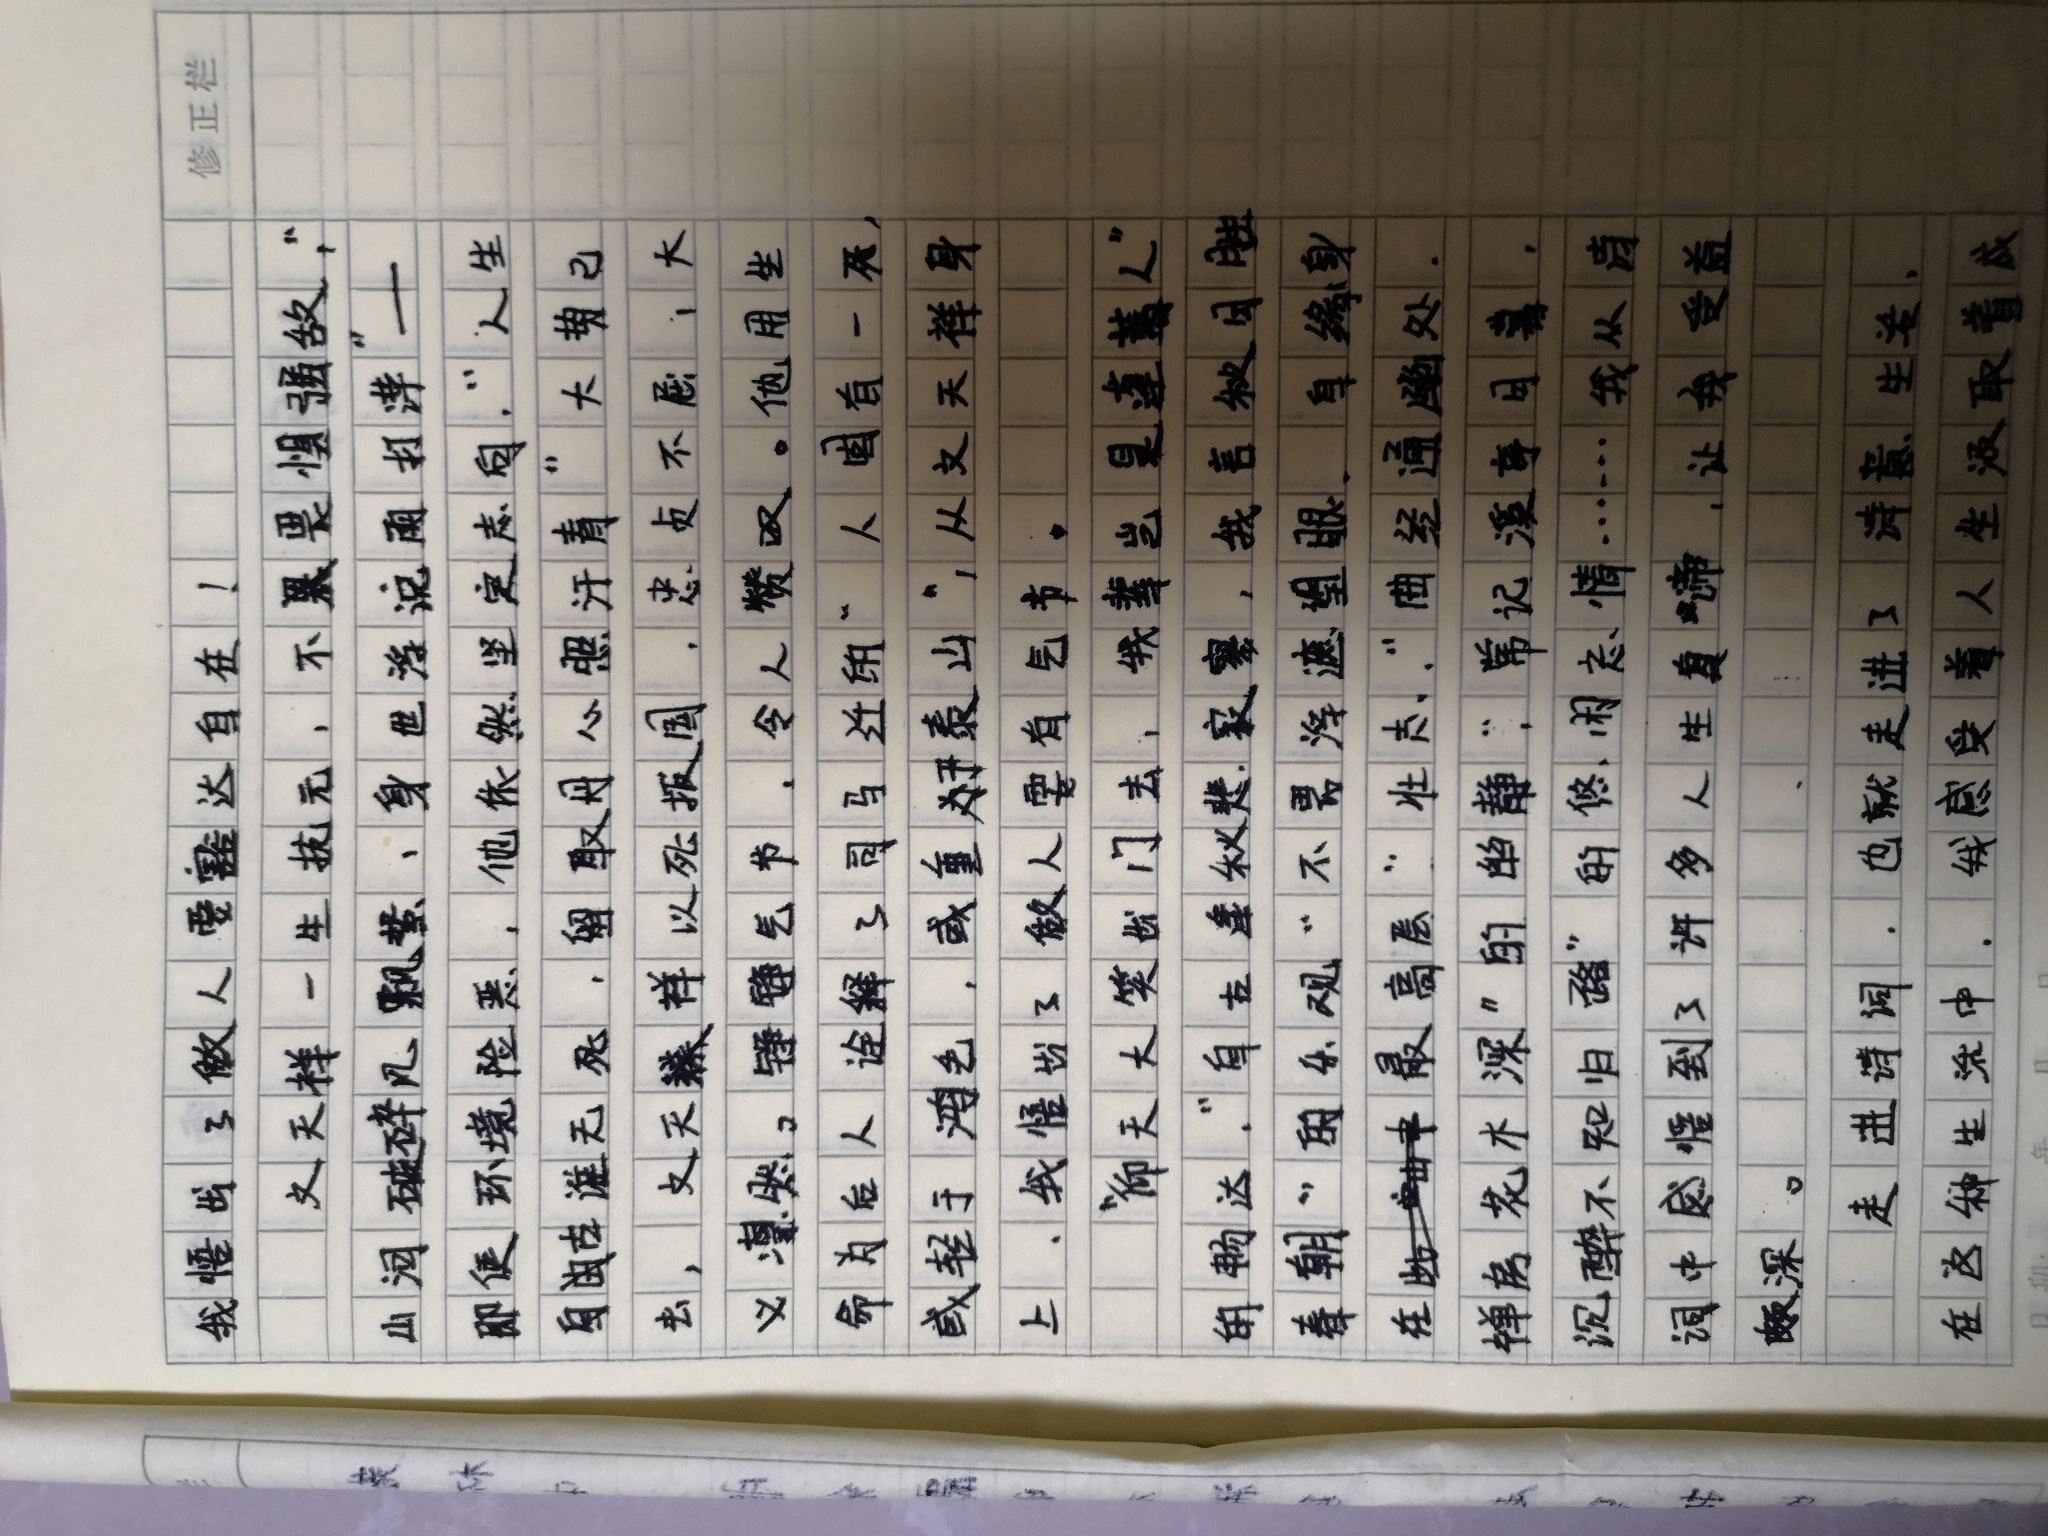 修正栏
我悟出了做人要豁达自在！
文天祥一生执元，不畏惧强敌，“
山河破碎风飘絮，身世浮沉雨打萍”——
即使环境险恶，他依然坚定志向，“人生
自古谁无死，留取丹心照汗青”大势已
去，文天祥以死报国，忠贞不屈，大
义凛然。铮铮气节，令人赞叹。他用生
命为后人诠释了司马迁的“人固有一死，
或轻于鸿毛，或重如泰山”，从文天祥身
上，我悟出了做人要有气节。
“仰天大笑出门去，我辈岂是蓬蒿人”
的畅达，“自古逢秋悲寂寥，我言秋日胜
春朝”的乐观“不畏浮遮望眼，自缘身
在最高层”壮志，“曲径通幽处，
禅房花木深”的幽静“，常记溪亭日暮，
沉醉不知归路”的悠闲志情……我从诗
词中感悟到了许多人生真啼，让我受益
颇深。
走进诗词，也就走进了诗意生活，
在这种生活中，我感受着人生汲取着成